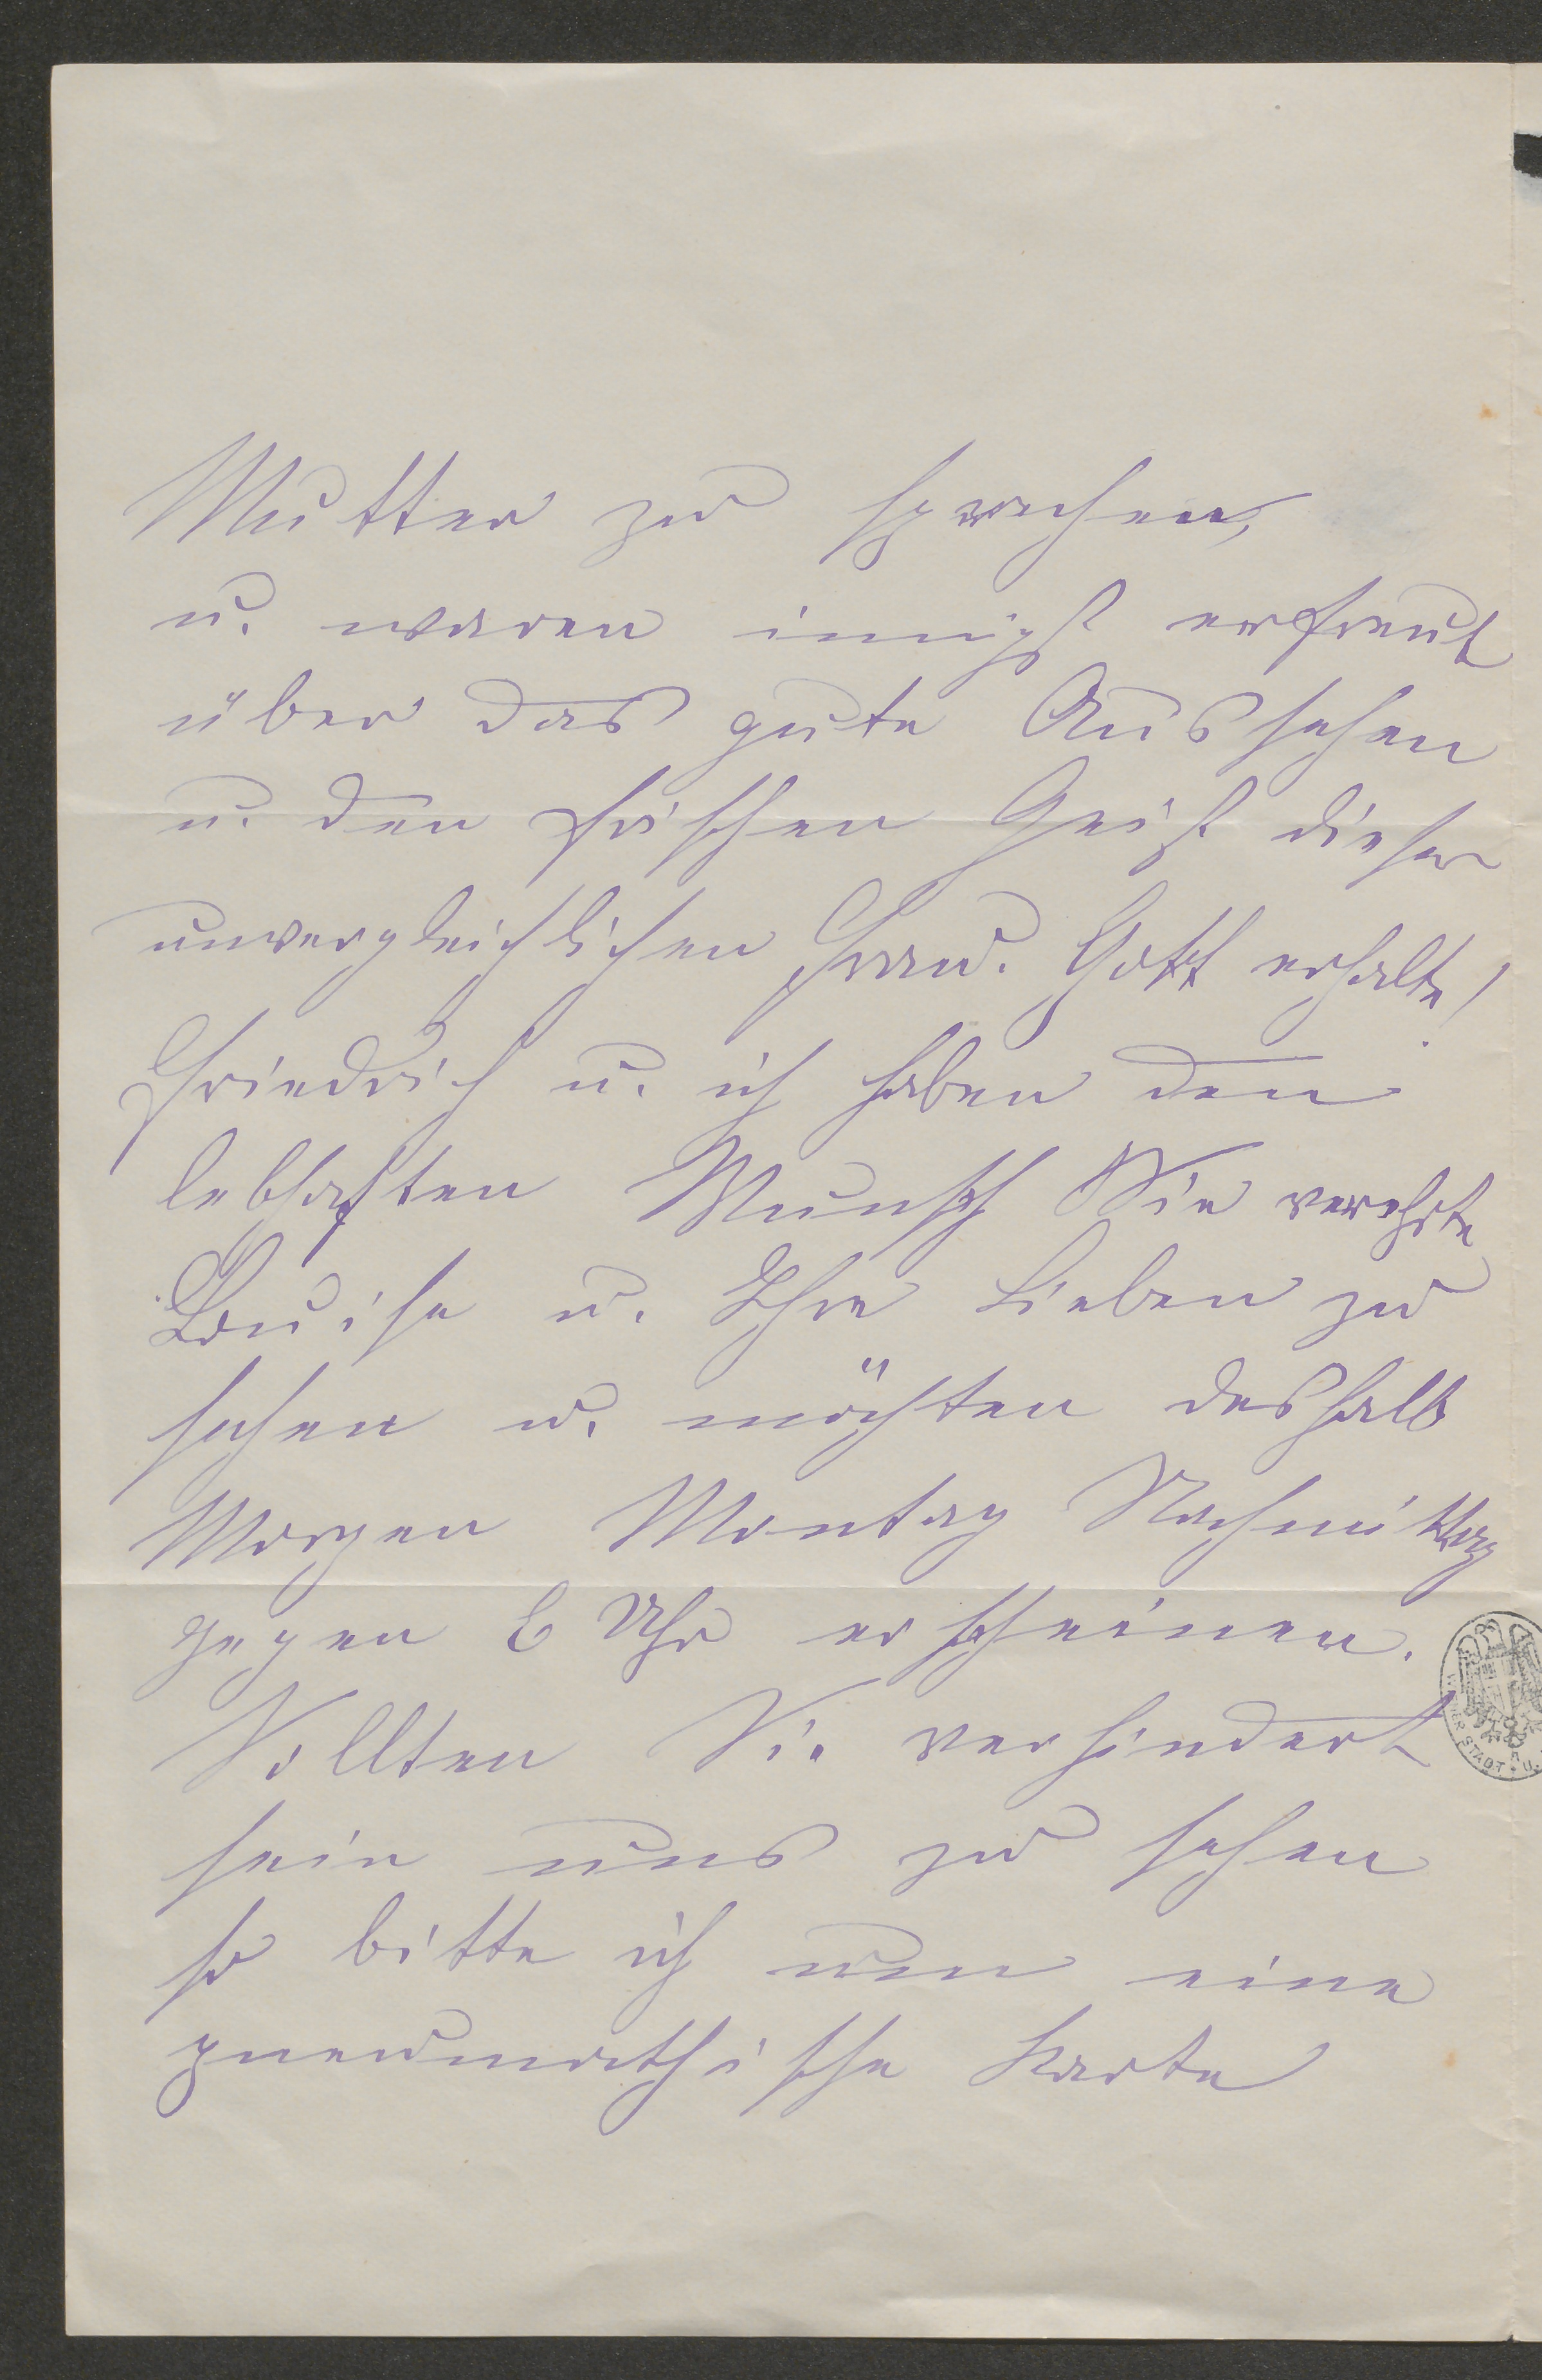 Mutter zu sprechen,
u. waren innigst erfreut
über das gute Aussehen
u. den frischen Geist dieser
unvergleichlichen Frau. Gott erhalte!
Friedrich u. ich haben den
lebhaften Wunsch Sie verehrte
Louise u. Ihre Lieben zu
sehen u. möchten deshalb
Morgen Montag Nachmittag
gegen 6 Uhr erscheinen.
Sollten Sie verhindert
sein uns zu sehen
so bitte ich um eine
pneumathische Karte